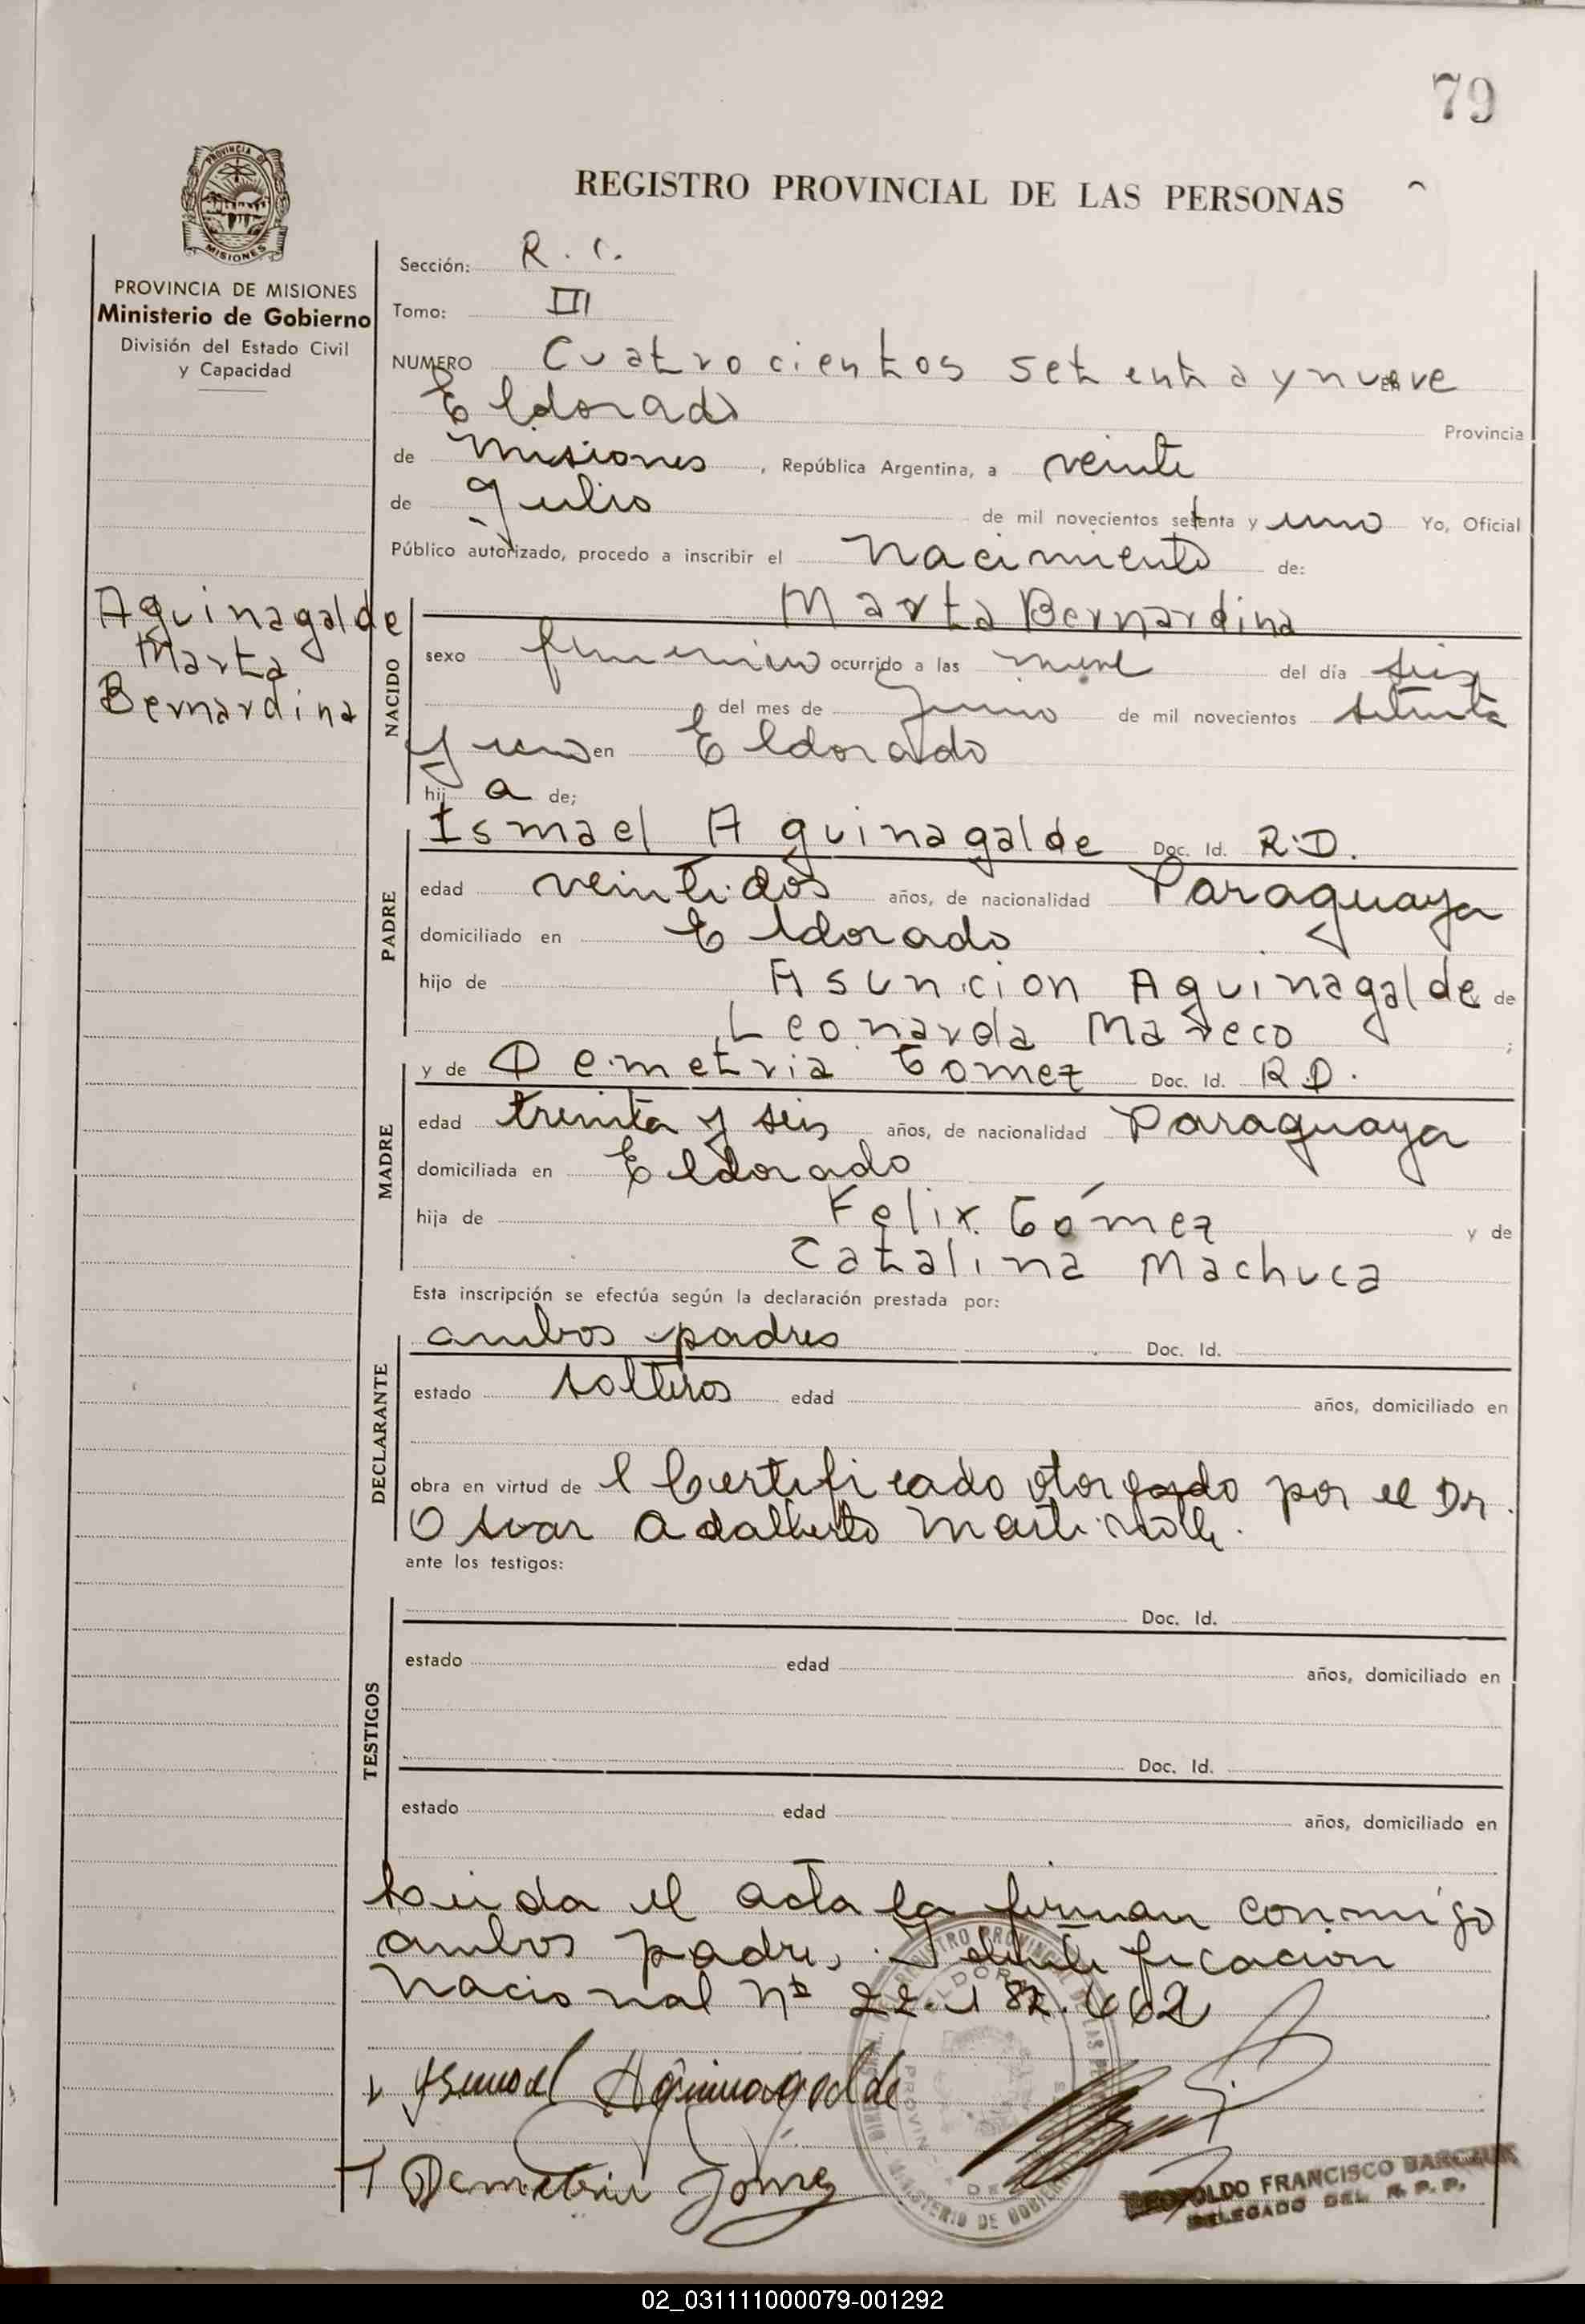 79
REGISTRO PROVINCIAL DE LAS PERSONAS
PROVINCIA DE MISIONES
Ministerio de Gobierno
División del Estado Civil
y Capacidad
Sección: R. C.
Tomo: III
NUMERO Cuatrocientos setenta y nueve
Eldorado
Provincia
de Misiones, República Argentina, a veinte
de Julio de mil novecientos setenta y uno Yo, Oficial
Público autorizado, procedo a inscribir el nacimiento de:
Aguinagalde
Marta
Bernardina
NACIDO
Marta Bernardina
sexo femenino ocurrido a las nueve del día seis
del mes de Junio de mil novecientos setenta
y uno en Eldorado
hij a de;
PADRE
Ismael Aguinagalde Doc. Id. R.D.
edad veintidos años, de nacionalidad Paraguaya
domiciliado en Eldorado
hijo de Asuncion Aguinagalde de
Leonarda Mareco ;
MADRE
y de Demetria Gomez Doc. Id. R.D.
edad treinta y seis años, de nacionalidad Paraguaya
domiciliada en Eldorado
hija de Felix Gómez y de
Catalina Machuca
Esta inscripción se efectúa según la declaración prestada por:
DECLARANTE
ambos padres Doc. Id.
estado solteros edad años, domiciliado en
obra en virtud de l Certificado otorgado por el Dr.
Oscar Adalberto
ante los testigos:
TESTIGOS
Doc. Id.
estado edad años, domiciliado en
Doc. Id.
estado edad años, domiciliado en
Leida el acta la firman conmigo
ambos padres. Identificación
Nacional Nº
Ismael Aguinagalde
Demetria Gómez
LEOPOLDO FRANCISCO
DELEGADO DEL R. P. P.
02_031111000079-001292